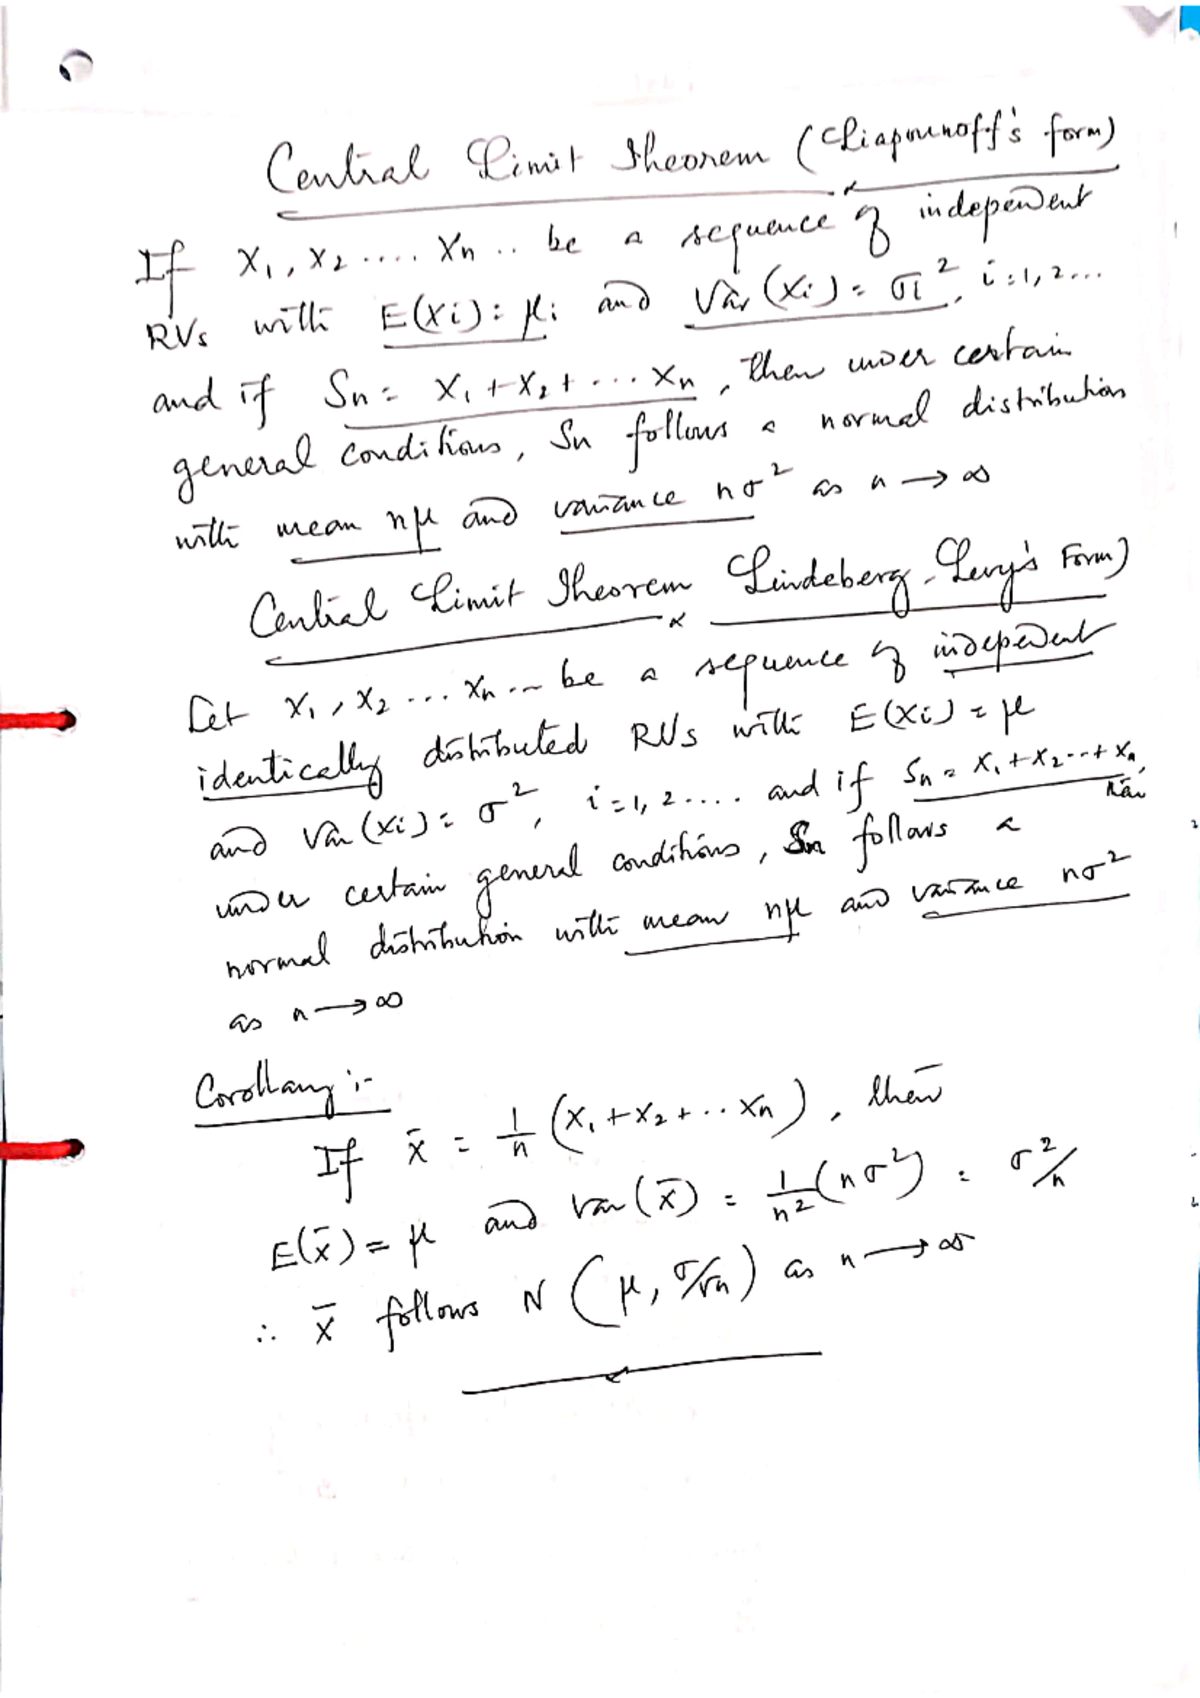 Central Limit Theorem (Liapounoff's form)
If X1, X2 .... Xn .. be a sequence of independent
RVs with E(Xi) = μi and Var(Xi) = σi², i = 1, 2...
and if Sn = X1 + X2 + ... Xn, then under certain
general conditions, Sn follows a normal distribution
with mean nμ and variance nσ² as n → ∞
Central Limit Theorem Lindeberg-Levy's Form)
Let X1, X2 ... Xn ... be a sequence of independent
identically distributed RVs with E(Xi) = μ
and Var(Xi) = σ², i = 1, 2 .... and if Sn = X1 + X2 ... + Xn,
then
under certain general conditions, Sn follows a
normal distribution with mean nμ and variance nσ²
as n → ∞
Corollary :-
If x̄ = 1/n (X1 + X2 + .. Xn), then
E(x̄) = μ and Var(x̄) = 1/n² (nσ²) = σ²/n
∴ x̄ follows N (μ, σ/√n) as n → ∞